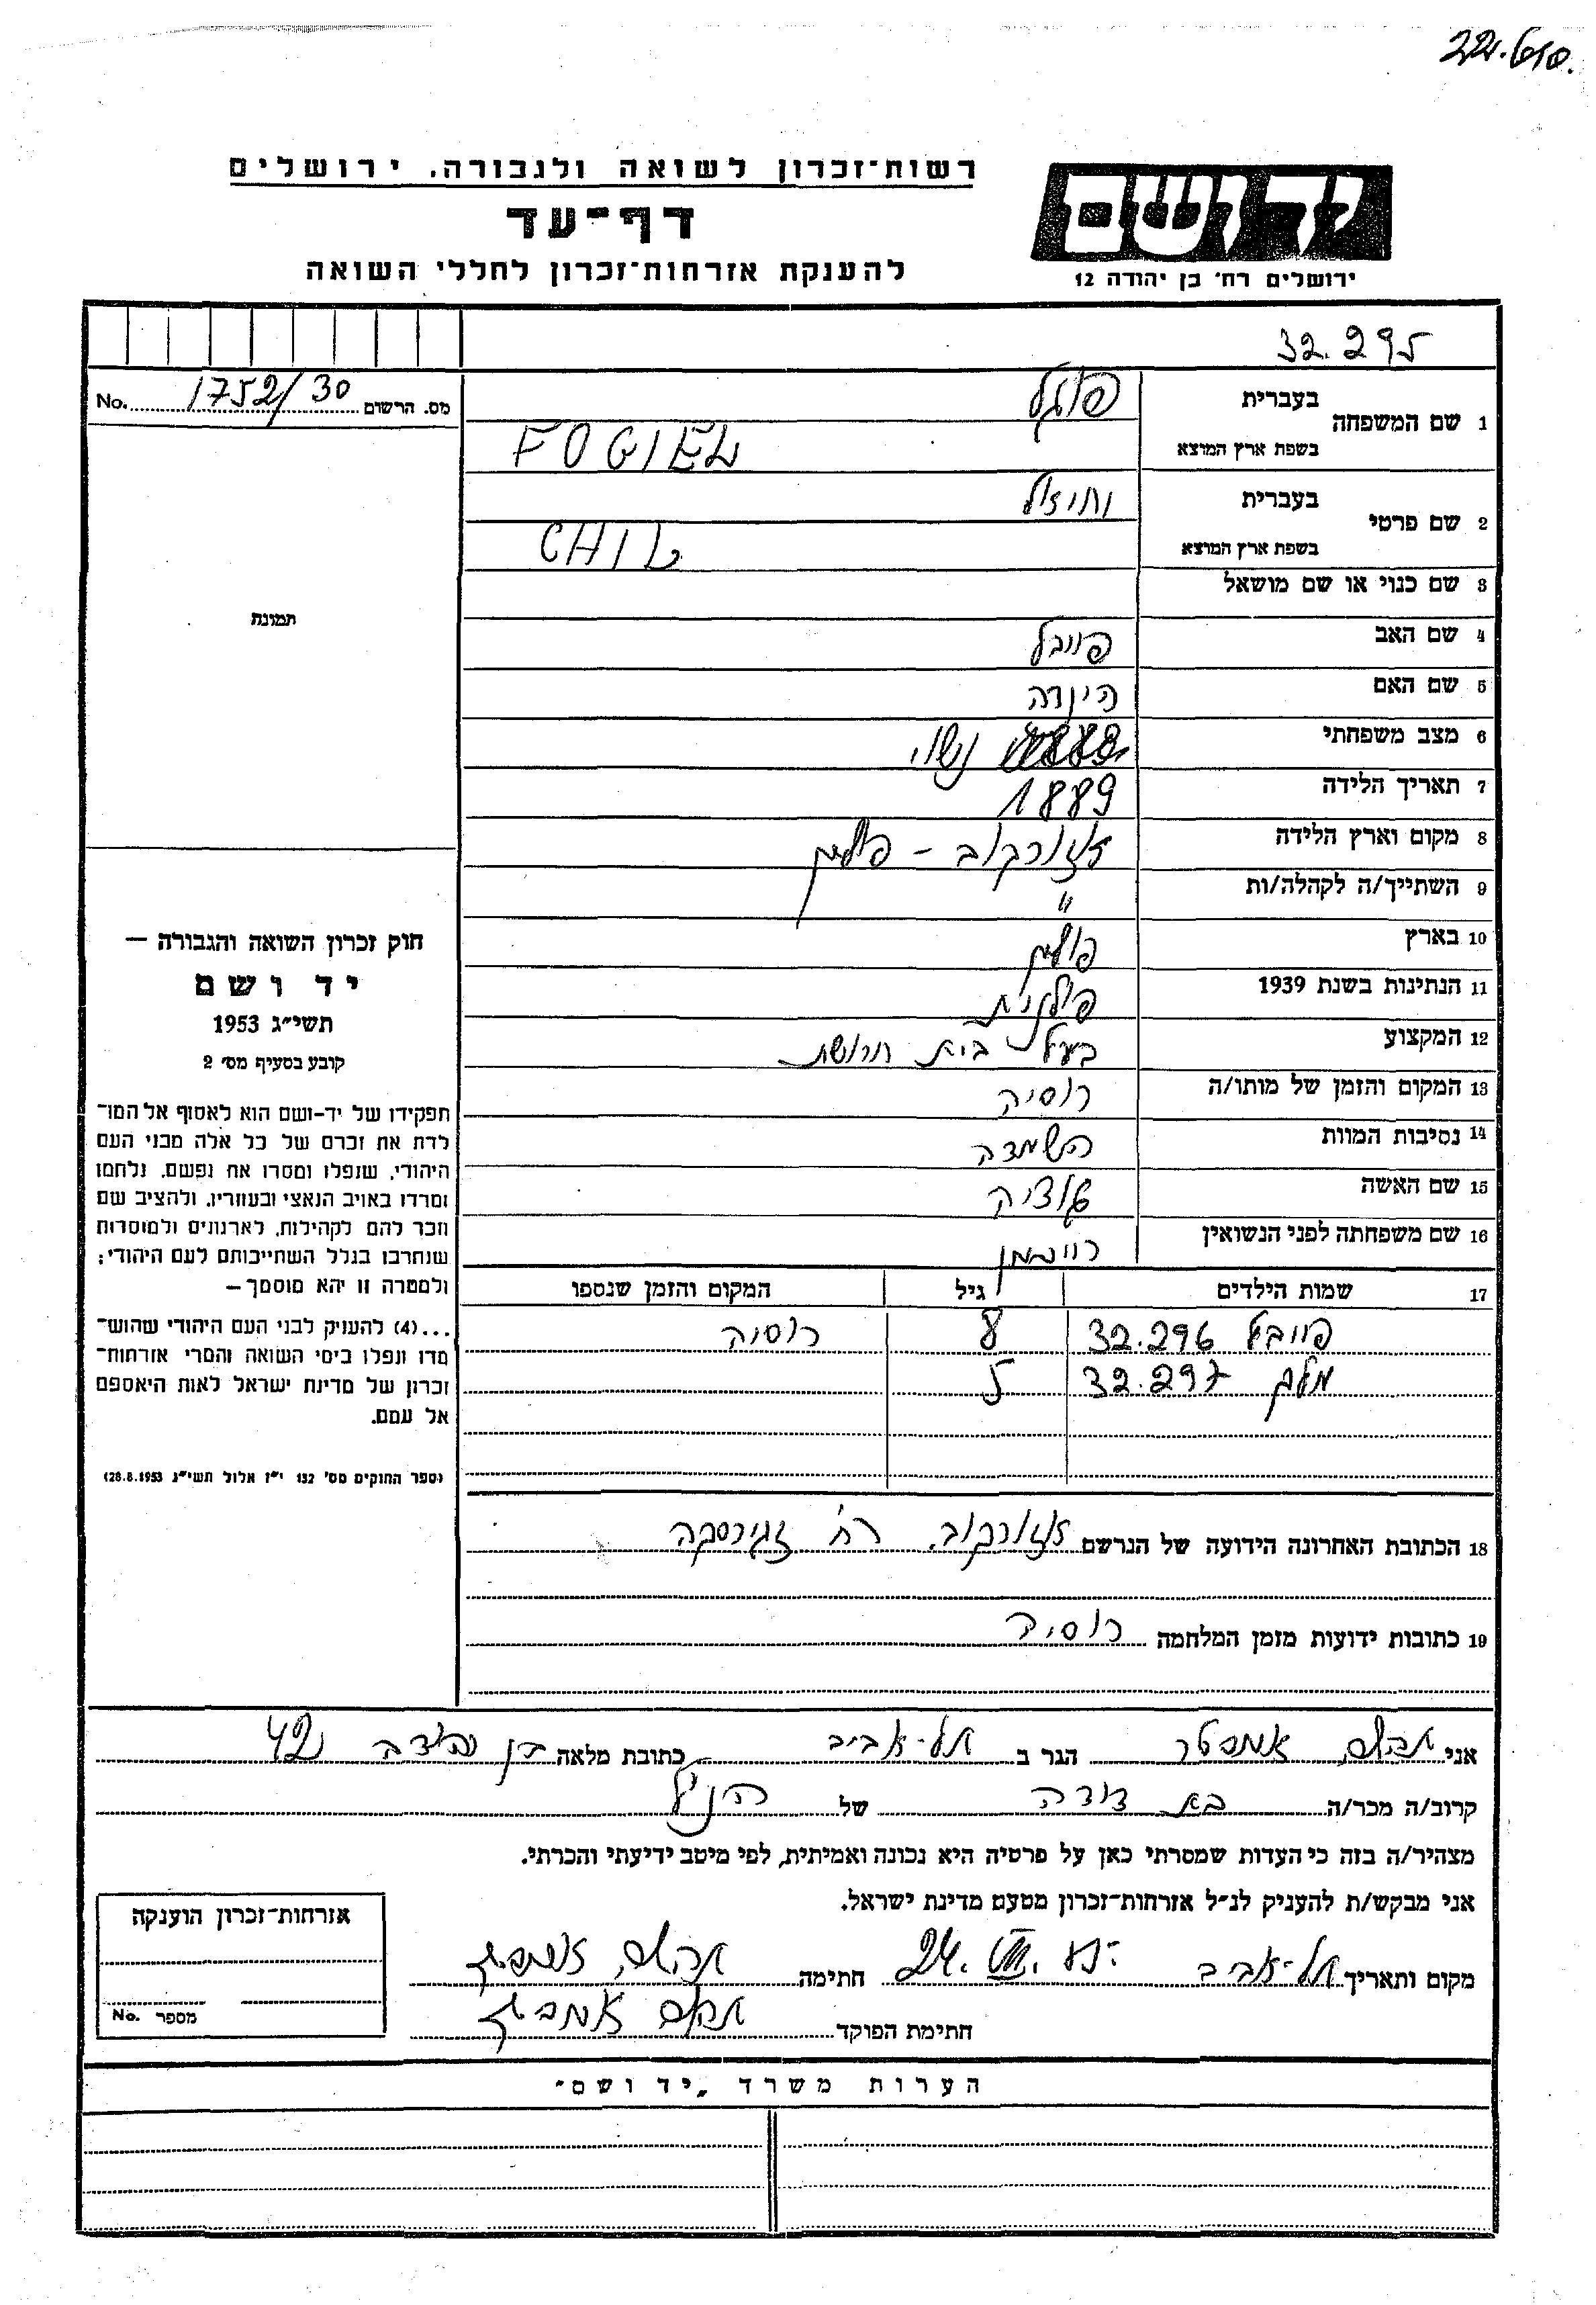 רשות־זכרון לשואה ולגבורה, ירושלים
דף־עד
להענקת אזרחות־זכרון לחללי השואה
יד ושם
ירושלים רח' בן יהודה 12
32.295
מס. הרשום 1752/30 No.
1 שם המשפחה בעברית פוגל
בשפת ארץ המוצא FOGIEL
2 שם פרטי בעברית יחיאל
בשפת ארץ המוצא CHIL
3 שם כנוי או שם מושאל
תמונת
4 שם האב פייבל
5 שם האם הינדה
6 מצב משפחתי נשוי
7 תאריך הלידה 1889
8 מקום וארץ הלידה אוזורקוב - פולין
9 השתייך/ה לקהלה/ות "
10 בארץ פולין
11 הנתינות בשנת 1939 פולנית
12 המקצוע בעל בית חרושת
13 המקום והזמן של מותו/ה רוסיה
14 נסיבות המוות השמדה
15 שם האשה
16 שם משפחתה לפני הנשואין
17 שמות הילדים גיל המקום והזמן שנספו
פייבל 32.296 8 רוסיה
32.297 5
חוק זכרון השואה והגבורה —
יד ושם
תשי"ג 1953
קובע בסעיף מס' 2
תפקידו של יד-ושם הוא לאסוף אל המו־
לדת את זכרם של כל אלה מבני העם
היהודי, שנפלו ומסרו את נפשם, נלחמו
ומרדו באויב הנאצי ובעוזריו, ולהציב שם
וזכר להם לקהילות, לארגונים ולמוסדות
שנחרבו בגלל השתייכותם לעם היהודי;
ולמטרה זו יהא מוסמך –
...(4) להעניק לבני העם היהודי שהוש־
מדו ונפלו בימי השואה והמרי אזרחות־
זכרון של מדינת ישראל לאות היאספם
אל עמם.
(ספר החוקים מס' 132 י"ז אלול תשי"ג 28.8.1953)
18 הכתובת האחרונה הידועה של הנרשם אוזורקוב, רח' זגירסקה
19 כתובות ידועות מזמן המלחמה רוסיה
אני הגר ב תל-אביב כתובת מלאה בן יהודה 42
קרוב/ה מכר/ה בת דודה של הנ"ל
מצהיר/ה בזה כי העדות שמסרתי כאן על פרטיה היא נכונה ואמיתית, לפי מיטב ידיעתי והכרתי.
אני מבקש/ת להעניק לנ"ל אזרחות־זכרון מטעם מדינת ישראל.
מקום ותאריך תל-אביב 24. VII. חתימה
חתימת הפוקד
אזרחות־זכרון הוענקה
מספר No.
הערות משרד "יד ושם"